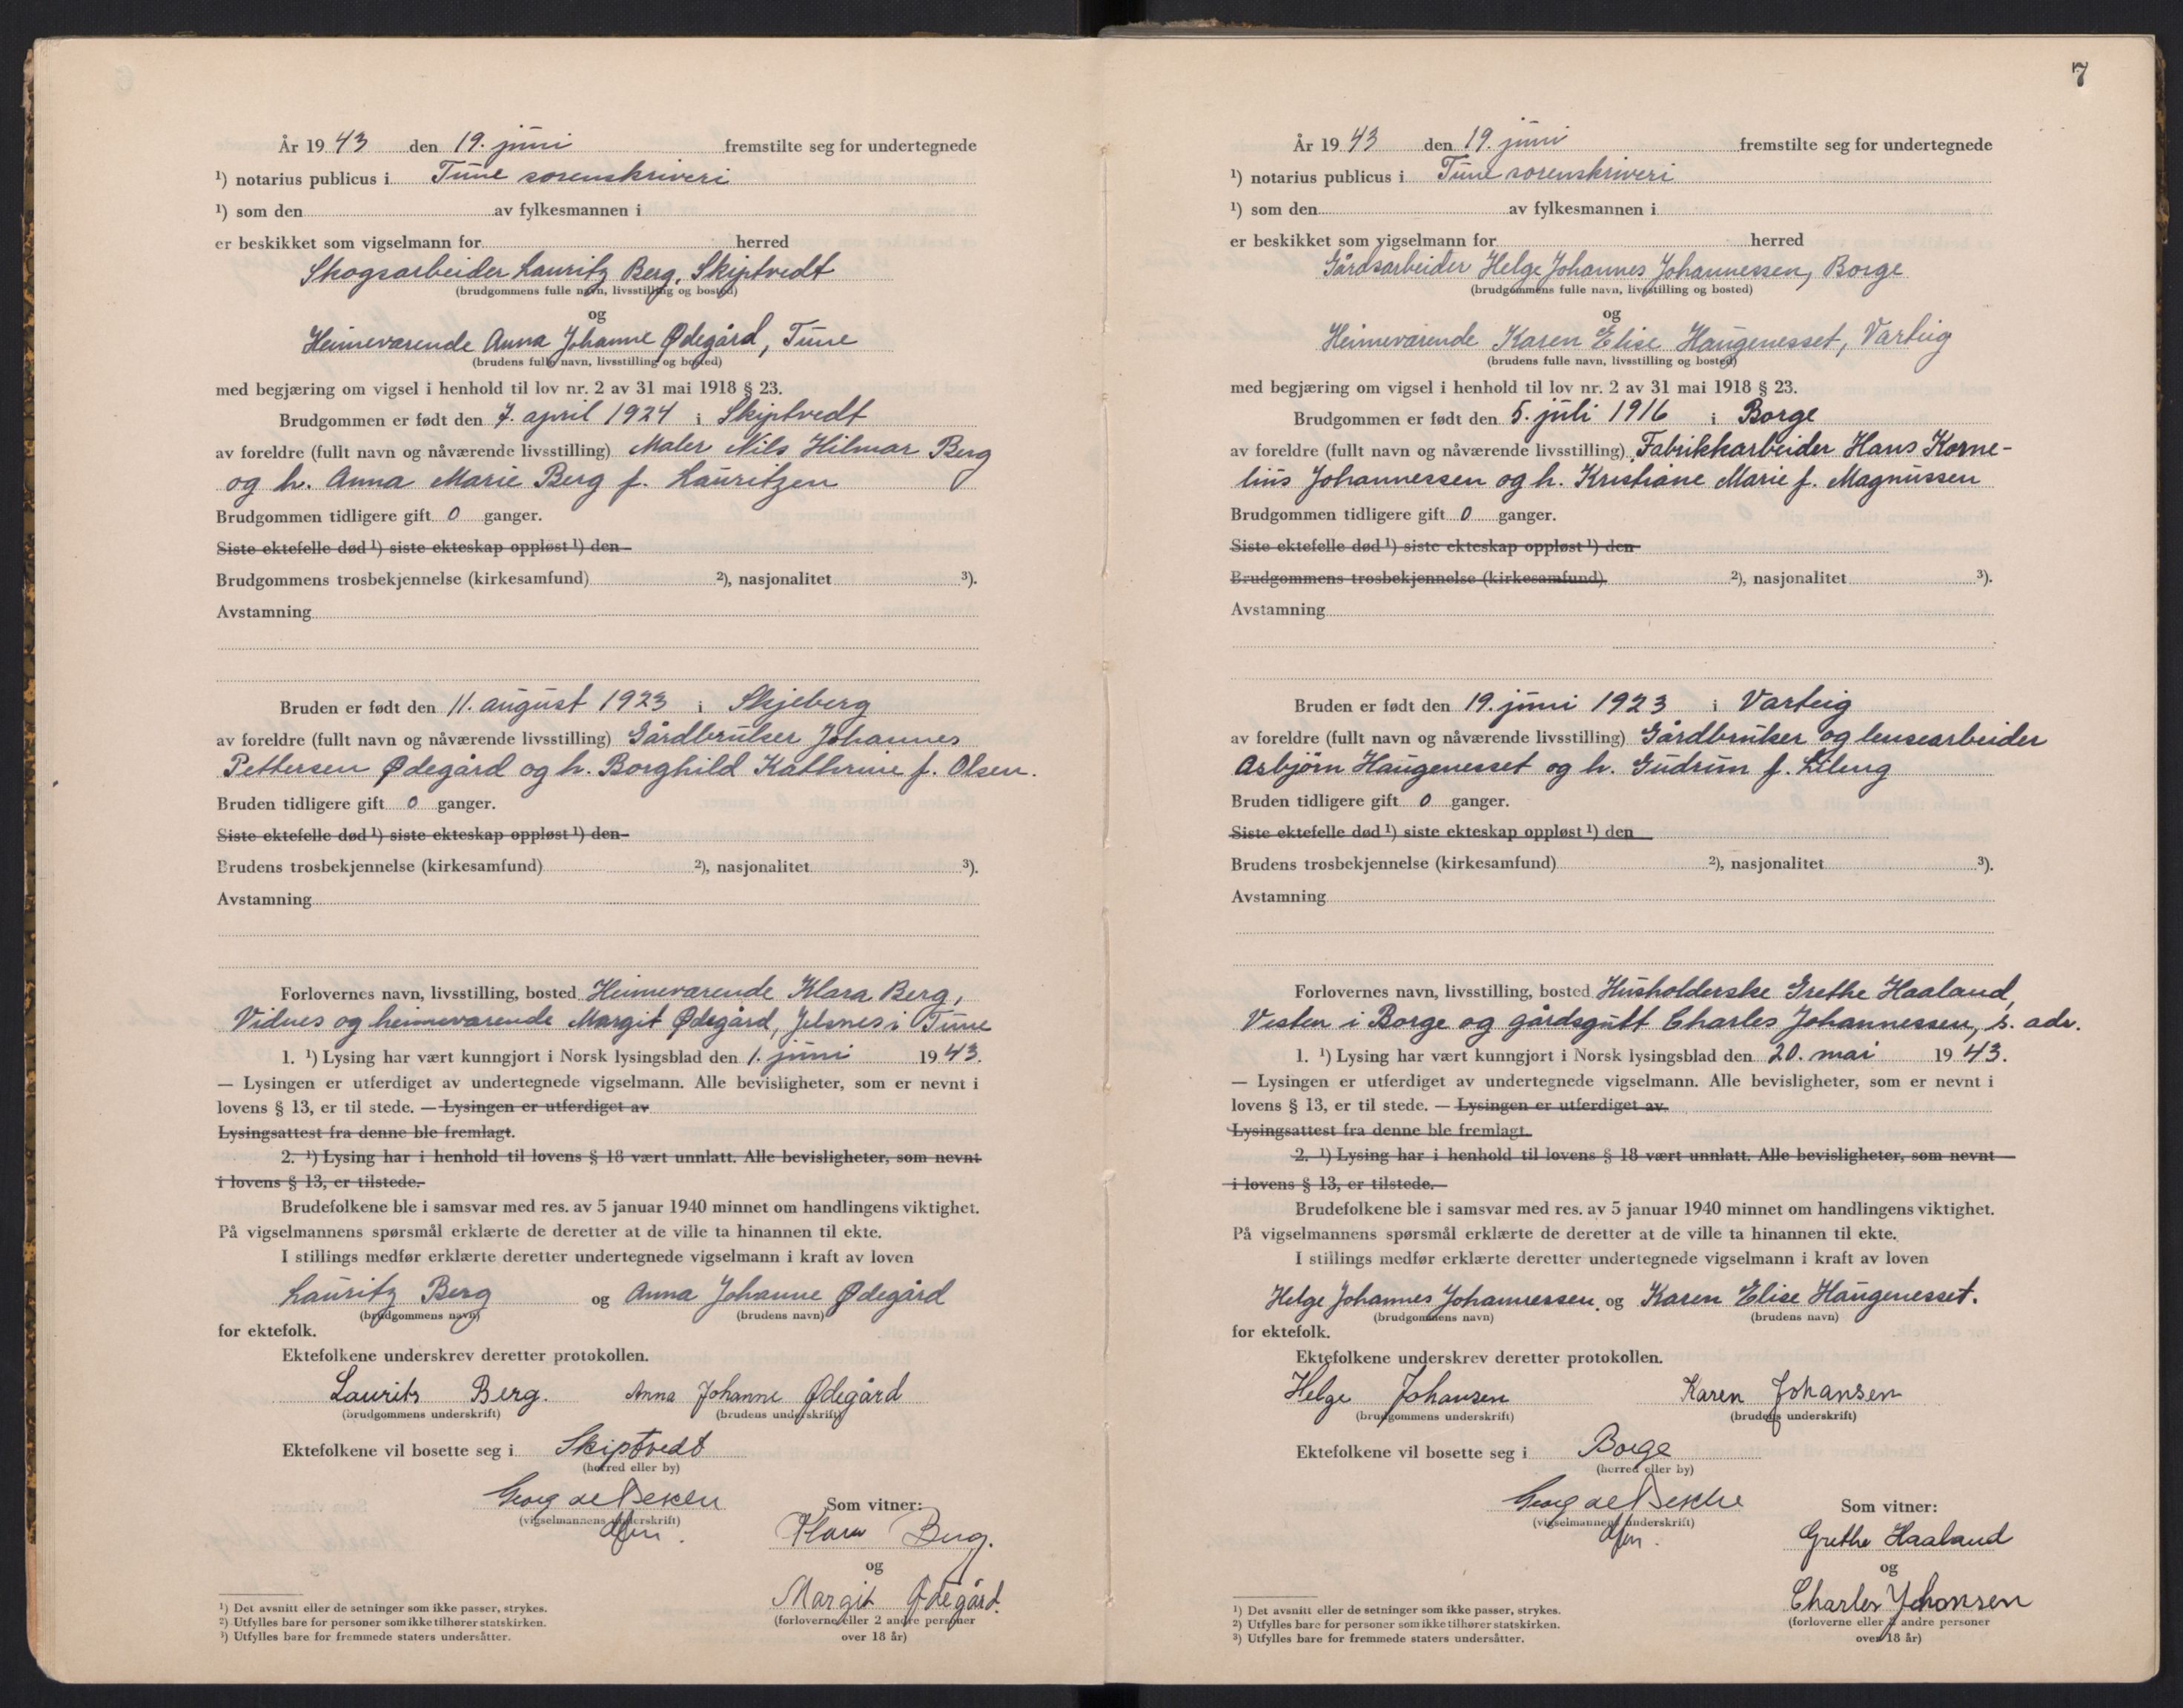 År 1943 den 19. juni fremstilte seg for undertegnede
¹) notarius publicus i Tune sorenskriveri
¹) som den av fylkesmannen i
er beskikket som vigselmann for herred
Skogsarbeider Lauritz Berg, Skiptvedt
(brudgommens fulle navn, livsstilling og bosted)
og
Heimeværende Anna Johanne Ødegård, Tune
(brudens fulle navn, livsstilling og bosted)
med begjæring om vigsel i henhold til lov nr. 2 av 31 mai 1918 § 23.
Brudgommen er født den 7. april 1924 i Skiptvedt
av foreldre (fullt navn og nåværende livsstilling) Maler Nils Hilmar Berg
og h. Anna Marie Berg f. Lauritzen
Brudgommen tidligere gift 0 ganger.
Siste ektefelle død ¹) siste ekteskap oppløst ¹) den
Brudgommens trosbekjennelse (kirkesamfund) ²), nasjonalitet ³).
Avstamning
Bruden er født den 11. august 1923 i Skjeberg
av foreldre (fullt navn og nåværende livsstilling) Gårdbruker Johannes
Pettersen Ødegård og h. Borghild Kathrine f. Olsen.
Bruden tidligere gift 0 ganger.
Siste ektefelle død ¹) siste ekteskap oppløst ¹) den
Brudens trosbekjennelse (kirkesamfund) ²), nasjonalitet ³).
Avstamning
Forlovernes navn, livsstilling, bosted Heimeværende Klara Berg,
Vidnes og heimeværende Margit Ødegård, Jelsnes i Tune
1. ¹) Lysing har vært kunngjort i Norsk lysingsblad den 1. juni 1943.
— Lysingen er utferdiget av undertegnede vigselmann. Alle bevisligheter, som er nevnt i
lovens § 13, er til stede. — Lysingen er utferdiget av
Lysingsattest fra denne ble fremlagt.
2. ¹) Lysing har i henhold til lovens § 18 vært unnlatt. Alle bevisligheter, som nevnt
i lovens § 13, er tilstede.
Brudefolkene ble i samsvar med res. av 5 januar 1940 minnet om handlingens viktighet.
På vigselmannens spørsmål erklærte de deretter at de ville ta hinannen til ekte.
I stillings medfør erklærte deretter undertegnede vigselmann i kraft av loven
Lauritz Berg og Anna Johanne Ødegård
(brudgommens navn) (brudens navn)
for ektefolk.
Ektefolkene underskrev deretter protokollen.
Laurits Berg. Anna Johanne Ødegård
(brudgommens underskrift) (brudens underskrift)
Ektefolkene vil bosette seg i Skiptvedt
(herred eller by)
Georg
(vigselmannens underskrift)
Som vitner:
Klara Berg.
og
Margit Ødegård.
(forloverne eller 2 andre personer
over 18 år)
¹) Det avsnitt eller de setninger som ikke passer, strykes.
²) Utfylles bare for personer som ikke tilhører statskirken.
³) Utfylles bare for fremmede staters undersåtter.
7
År 1943 den 19. juni fremstilte seg for undertegnede
¹) notarius publicus i Tune sorenskriveri
¹) som den av fylkesmannen i
er beskikket som vigselmann for herred
Gårdsarbeider Helge Johannes Johannessen, Borge
(brudgommens fulle navn, livsstilling og bosted)
og
Heimeværende Karen Elise Haugenesset, Varteig
(brudens fulle navn, livsstilling og bosted)
med begjæring om vigsel i henhold til lov nr. 2 av 31 mai 1918 § 23.
Brudgommen er født den 5. juli 1916 i Borge
av foreldre (fullt navn og nåværende livsstilling) Fabrikkarbeider Hans Korne-
lius Johannessen og h. Kristiane Marie f. Magnussen
Brudgommen tidligere gift 0 ganger.
Siste ektefelle død ¹) siste ekteskap oppløst ¹) den
Brudgommens trosbekjennelse (kirkesamfund) ²), nasjonalitet ³).
Avstamning
Bruden er født den 19. juni 1923 i Varteig
av foreldre (fullt navn og nåværende livsstilling) Gårdbruker og lensearbeider
Asbjørn Haugenesset og h. Gudrun f.
Bruden tidligere gift 0 ganger.
Siste ektefelle død ¹) siste ekteskap oppløst ¹) den
Brudens trosbekjennelse (kirkesamfund) ²), nasjonalitet ³).
Avstamning
Forlovernes navn, livsstilling, bosted Husholderske Grethe Haaland,
Vesten i Borge og gårdsgutt Charles Johannessen, s. adr.
1. ¹) Lysing har vært kunngjort i Norsk lysingsblad den 20. mai 1943.
— Lysingen er utferdiget av undertegnede vigselmann. Alle bevisligheter, som er nevnt i
lovens § 13, er til stede. — Lysingen er utferdiget av
Lysingsattest fra denne ble fremlagt.
2. ¹) Lysing har i henhold til lovens § 18 vært unnlatt. Alle bevisligheter, som nevnt
i lovens § 13, er tilstede.
Brudefolkene ble i samsvar med res. av 5 januar 1940 minnet om handlingens viktighet.
På vigselmannens spørsmål erklærte de deretter at de ville ta hinannen til ekte.
I stillings medfør erklærte deretter undertegnede vigselmann i kraft av loven
Helge Johannes Johannessen og Karen Elise Haugenesset.
(brudgommens navn) (brudens navn)
for ektefolk.
Ektefolkene underskrev deretter protokollen.
Helge Johansen Karen Johansen
(brudgommens underskrift) (brudens underskrift)
Ektefolkene vil bosette seg i Borge
(herred eller by)
Georg
(vigselmannens underskrift)
Som vitner:
Grethe Haaland
og
Charles Johansen
(forloverne eller 2 andre personer
over 18 år)
¹) Det avsnitt eller de setninger som ikke passer, strykes.
²) Utfylles bare for personer som ikke tilhører statskirken.
³) Utfylles bare for fremmede staters undersåtter.